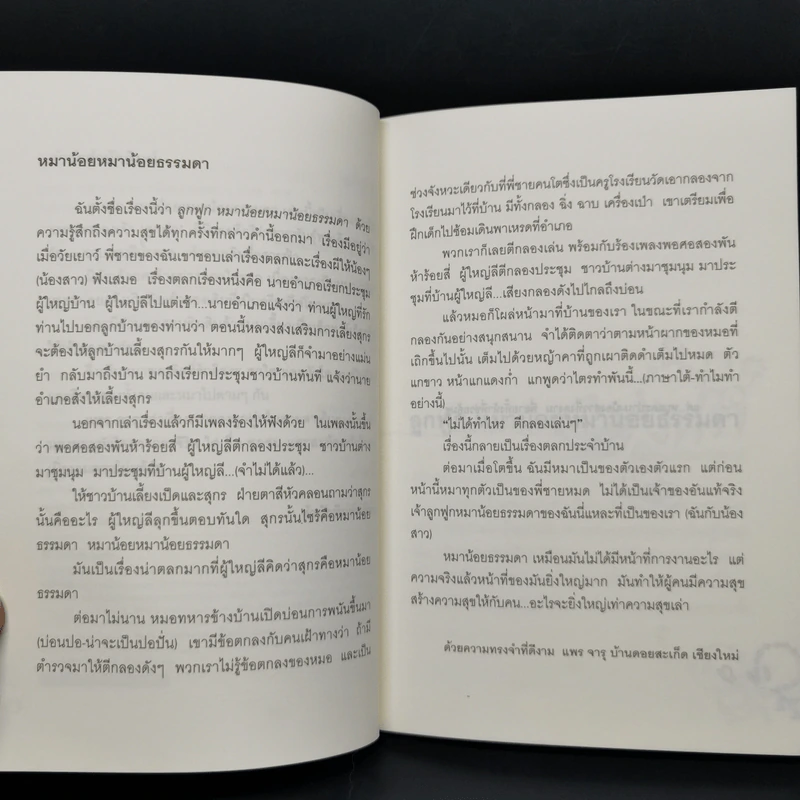 หมาน้อยหมาน้อยธรรมดา
ฉันตั้งชื่อเรื่องนี้ว่า ลูกฟูก หมาน้อยหมาน้อยธรรมดา ด้วย
ความรู้สึกถึงความสุขได้ทุกครั้งที่กล่าวคำนี้ออกมา เรื่องมีอยู่ว่า
เมื่อวัยเยาว์ พี่ชายของฉันเขาชอบเล่าเรื่องตลกและเรื่องผีให้น้องๆ
(น้องสาว) ฟังเสมอ เรื่องตลกเรื่องหนึ่งคือ นายอำเภอเรียกประชุม
ผู้ใหญ่บ้าน ผู้ใหญ่ลีไปแต่เช้า...นายอำเภอแจ้งว่า ท่านผู้ใหญ่ที่รัก
ท่านไปบอกลูกบ้านของท่านว่า ตอนนี้หลวงส่งเสริมการเลี้ยงสุกร
จะต้องให้ลูกบ้านเลี้ยงสุกรกันให้มากๆ ผู้ใหญ่ลีก็จำมาอย่างแม่น
ยำ กลับมาถึงบ้าน มาถึงเรียกประชุมชาวบ้านทันที แจ้งว่านาย
อำเภอสั่งให้เลี้ยงสุกร
นอกจากเล่าเรื่องแล้วก็มีเพลงร้องให้ฟังด้วย ในเพลงนั้นขึ้น
ว่า พอศอสองพันห้าร้อยสี่ ผู้ใหญ่ลีตีกลองประชุม ชาวบ้านต่าง
มาชุมนุม มาประชุมที่บ้านผู้ใหญ่ลี...(จำไม่ได้แล้ว)...
ให้ชาวบ้านเลี้ยงเป็ดและสุกร ฝ่ายตาสีหัวคลอนถามว่าสุกร
นั้นคืออะไร ผู้ใหญ่ลีลุกขึ้นตอบทันใด สุกรนั้นไซร้คือหมาน้อย
ธรรมดา หมาน้อยหมาน้อยธรรมดา
มันเป็นเรื่องน่าตลกมากที่ผู้ใหญ่ลีคิดว่าสุกรคือหมาน้อย
ธรรมดา
ต่อมาไม่นาน หมอทหารข้างบ้านเปิดบ่อนการพนันขึ้นมา
(บ่อนปอ-น่าจะเป็นปอปั่น) เขามีข้อตกลงกับคนเฝ้าทางว่า ถ้ามี
ตำรวจมาให้ตีกลองดังๆ พวกเราไม่รู้ข้อตกลงของหมอ และเป็น
ช่วงจังหวะเดียวกับที่พี่ชายคนโตซึ่งเป็นครูโรงเรียนวัดเอากลองจาก
โรงเรียนมาไว้ที่บ้าน มีทั้งกลอง ฉิ่ง ฉาบ เครื่องเป่า เขาเตรียมเพื่อ
ฝึกเด็กไปซ้อมเดินพาเหรดที่อำเภอ
พวกเราก็เลยตีกลองเล่น พร้อมกับร้องเพลงพอศอสองพัน
ห้าร้อยสี่ ผู้ใหญ่ลีตีกลองประชุม ชาวบ้านต่างมาชุมนุม มาประ
ชุมที่บ้านผู้ใหญ่ลี...เสียงกลองดังไปไกลถึงบ่อน
แล้วหมอก็โผล่หน้ามาที่บ้านของเรา ในขณะที่เรากำลังตี
กลองกันอย่างสนุกสนาน จำได้ติดตาว่าตามหน้าผากของหมอที่
เถิกขึ้นไปนั้น เต็มไปด้วยหญ้าคาที่ถูกเผาติดดำเต็มไปหมด ตัว
แกขาว หน้าแกแดงก่ำ แกพูดว่าไตรทำพันนี้...(ภาษาใต้-ทำไมทำ
อย่างนี้)
“ไม่ได้ทำไหร ตีกลองเล่นๆ”
เรื่องนี้กลายเป็นเรื่องตลกประจำบ้าน
ต่อมาเมื่อโตขึ้น ฉันมีหมาเป็นของตัวเองตัวแรก แต่ก่อน
หน้านี้หมาทุกตัวเป็นของพี่ชายหมด ไม่ได้เป็นเจ้าของอันแท้จริง
เจ้าลูกฟูกหมาน้อยธรรมดาของฉันนี่แหละที่เป็นของเรา (ฉันกับน้อง
สาว)
หมาน้อยธรรมดา เหมือนมันไม่ได้มีหน้าที่การงานอะไร แต่
ความจริงแล้วหน้าที่ของมันยิ่งใหญ่มาก มันทำให้ผู้คนมีความสุข
สร้างความสุขให้กับคน...อะไรจะยิ่งใหญ่เท่าความสุขเล่า
ด้วยความทรงจำที่ดีงาม แพร จารุ บ้านดอยสะเก็ด เชียงใหม่